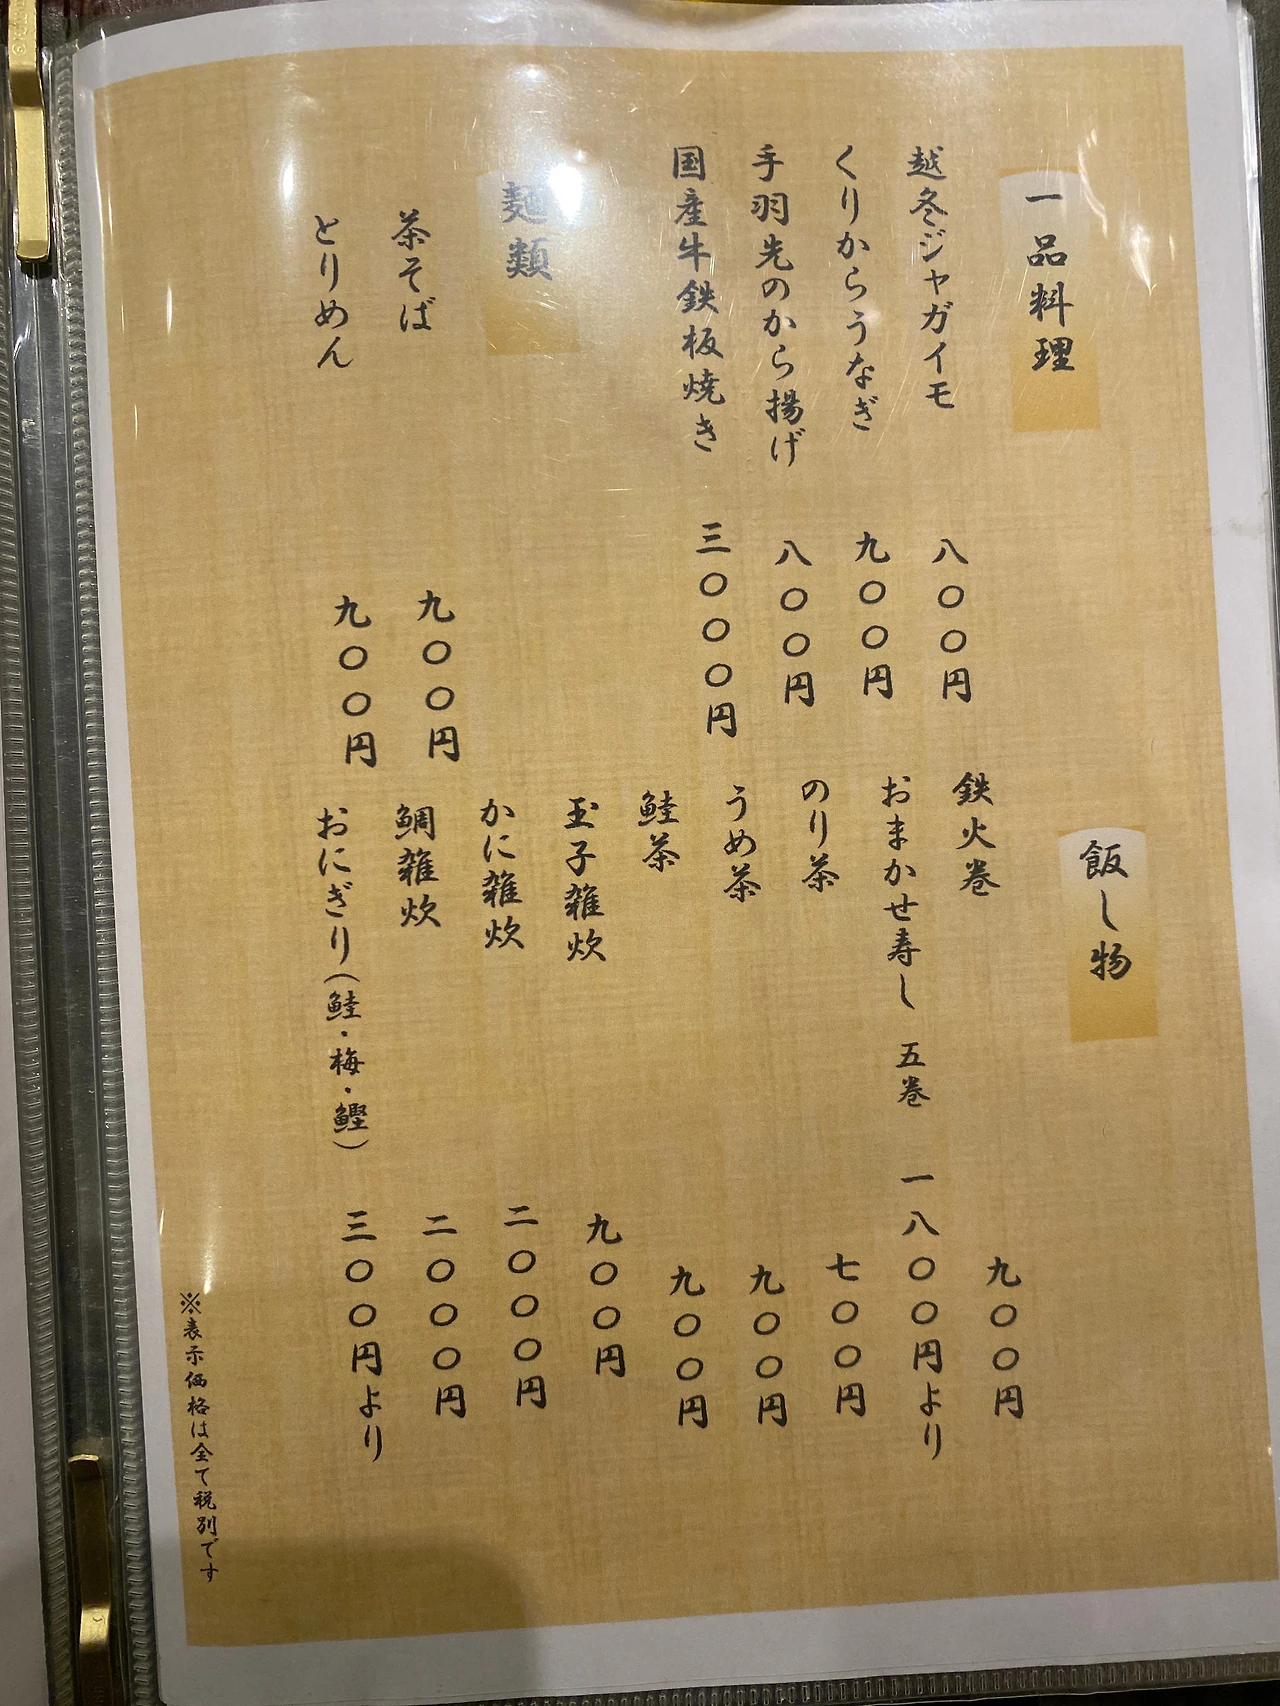 一品料理
越冬ジャガイモ 八〇〇円
くりからうなぎ 九〇〇円
手羽先のから揚げ 八〇〇円
国産牛鉄板焼き 三〇〇〇円
麺類
茶そば 九〇〇円
とりめん 九〇〇円
飯し物
鉄火巻 九〇〇円
おまかせ寿し 五巻 一八〇〇円より
のり茶 七〇〇円
うめ茶 九〇〇円
鮭茶 九〇〇円
玉子雑炊 九〇〇円
かに雑炊 二〇〇〇円
鯛雑炊 二〇〇〇円
おにぎり(鮭・梅・鰹) 三〇〇円より
※表示価格は全て税別です